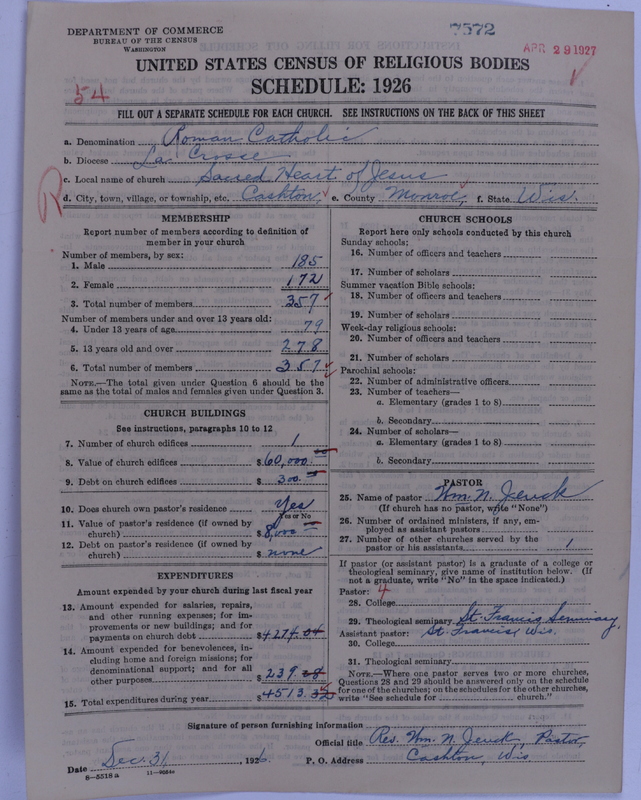 DEPARTMENT OF COMMERCE
BUREAU OF THE CENSUS
WASHINGTON
7572
APR 29 1927
UNITED STATES CENSUS OF RELIGIOUS BODIES
SCHEDULE: 1926
54
FILL OUT A SEPARATE SCHEDULE FOR EACH CHURCH. SEE INSTRUCTIONS ON THE BACK OF THIS SHEET
a. Denomination Roman Catholic
b. Diocese La Crosse
c. Local name of church Sacred Heart of Jesus
d. City, town, village, or township, etc. Cashton, e. County Monroe, f. State Wis.
R
MEMBERSHIP
Report number of members according to definition of
member in your church
Number of members, by sex:
1. Male 185
2. Female 172
3. Total number of members 357
Number of members under and over 13 years old:
4. Under 13 years of age 79
5. 13 years old and over 278
6. Total number of members 357
NOTE.—The total given under Question 6 should be the
same as the total of males and females given under Question 3.
CHURCH BUILDINGS
See instructions, paragraphs 10 to 12
7. Number of church edifices 1
8. Value of church edifices $60,000.
9. Debt on church edifices $ 300.
10. Does church own pastor's residence Yes
Yes or No
11. Value of pastor's residence (if owned by
church) $8,000
12. Debt on pastor's residence (if owned by
church) $ none
EXPENDITURES
Amount expended by your church during last fiscal year
13. Amount expended for salaries, repairs,
and other running expenses; for im-
provements or new buildings; and for
payments on church debt $4274.04
14. Amount expended for benevolences, in-
cluding home and foreign missions; for
denominational support; and for all
other purposes $ 239.
15. Total expenditures during year $4513.
CHURCH SCHOOLS
Report here only schools conducted by this church
Sunday schools:
16. Number of officers and teachers
17. Number of scholars
Summer vacation Bible schools:
18. Number of officers and teachers
19. Number of scholars
Week-day religious schools:
20. Number of officers and teachers
21. Number of scholars
Parochial schools:
22. Number of administrative officers
23. Number of teachers—
a. Elementary (grades 1 to 8)
b. Secondary
24. Number of scholars—
a. Elementary (grades 1 to 8)
b. Secondary
PASTOR
25. Name of pastor Wm. N. Jeuck
(If church has no pastor, write "None")
26. Number of ordained ministers, if any, em-
ployed as assistant pastors
27. Number of other churches served by the
pastor or his assistants 1
If pastor (or assistant pastor) is a graduate of a college or
theological seminary, give name of institution below. (If
not a graduate, write "No" in the space indicated.)
Pastor: 4
28. College
29. Theological seminary St. Francis Seminary,
Assistant pastor: St. Francis, Wis.
30. College
31. Theological seminary
NOTE.—Where one pastor serves two or more churches,
Questions 28 and 29 should be answered only on the schedule
for one of the churches; on the schedules for the other churches,
write "See schedule for church."
Signature of person furnishing information
Official title Rev. Wm. N. Jeuck, Pastor,
Date Dec. 31, 1926. P. O. Address Cashton, Wis
8—5518a 11—9684